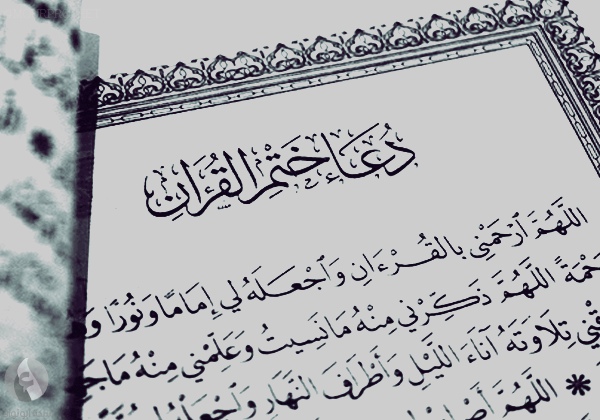 دُعَاءُ خَتْمِ الْقُرْآنِ
اللَّهُمَّ ٱرْحَمْنِي بِالقُرْءَانِ وَٱجْعَلهُ لِي إِمَامًا وَنُورًا
اللَّهُمَّ ذَكِّرْنِي مِنْهُ مَانَسِيتُ وَعَلِّمْنِي مِنْهُ
تِلَاوَتَهُ آنَاءَ اللَّيْلِ وَأَطْرَافَ النَّهَارِ
* اللَّهُمَّ